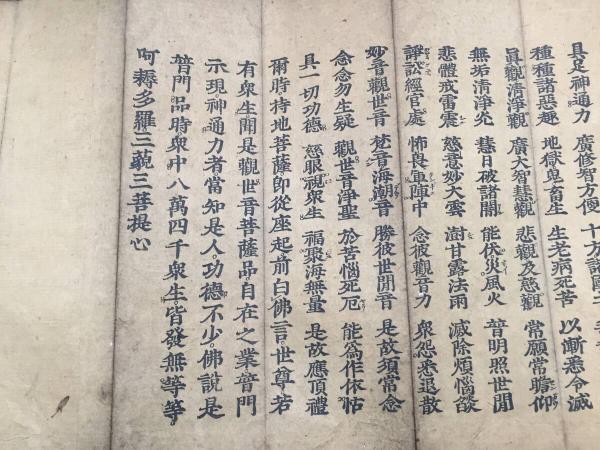 具足神通力 廣修智方便 十方諸國土
種種諸惡趣 地獄鬼畜生 生老病死苦 以漸悉令滅
眞觀清淨觀 廣大智慧觀 悲觀及慈觀 常願常瞻仰
無垢清淨光 慧日破諸闇 能伏災風火 普明照世間
悲體戒雷震 慈意妙大雲 澍甘露法雨 滅除煩惱燄
諍訟經官處 怖畏軍陣中 念彼觀音力 衆怨悉退散
妙音觀世音 梵音海潮音 勝彼世間音 是故須常念
念念勿生疑 觀世音淨聖 於苦惱死厄 能爲作依怙
具一切功德 慈眼視衆生 福聚海無量 是故應頂禮
爾時持地菩薩即從座起前白佛言世尊若
有衆生聞是觀世音菩薩品自在之業普門
示現神通力者當知是人功德不少佛說是
普門品時衆中八萬四千衆生皆發無等等
阿耨多羅三藐三菩提心